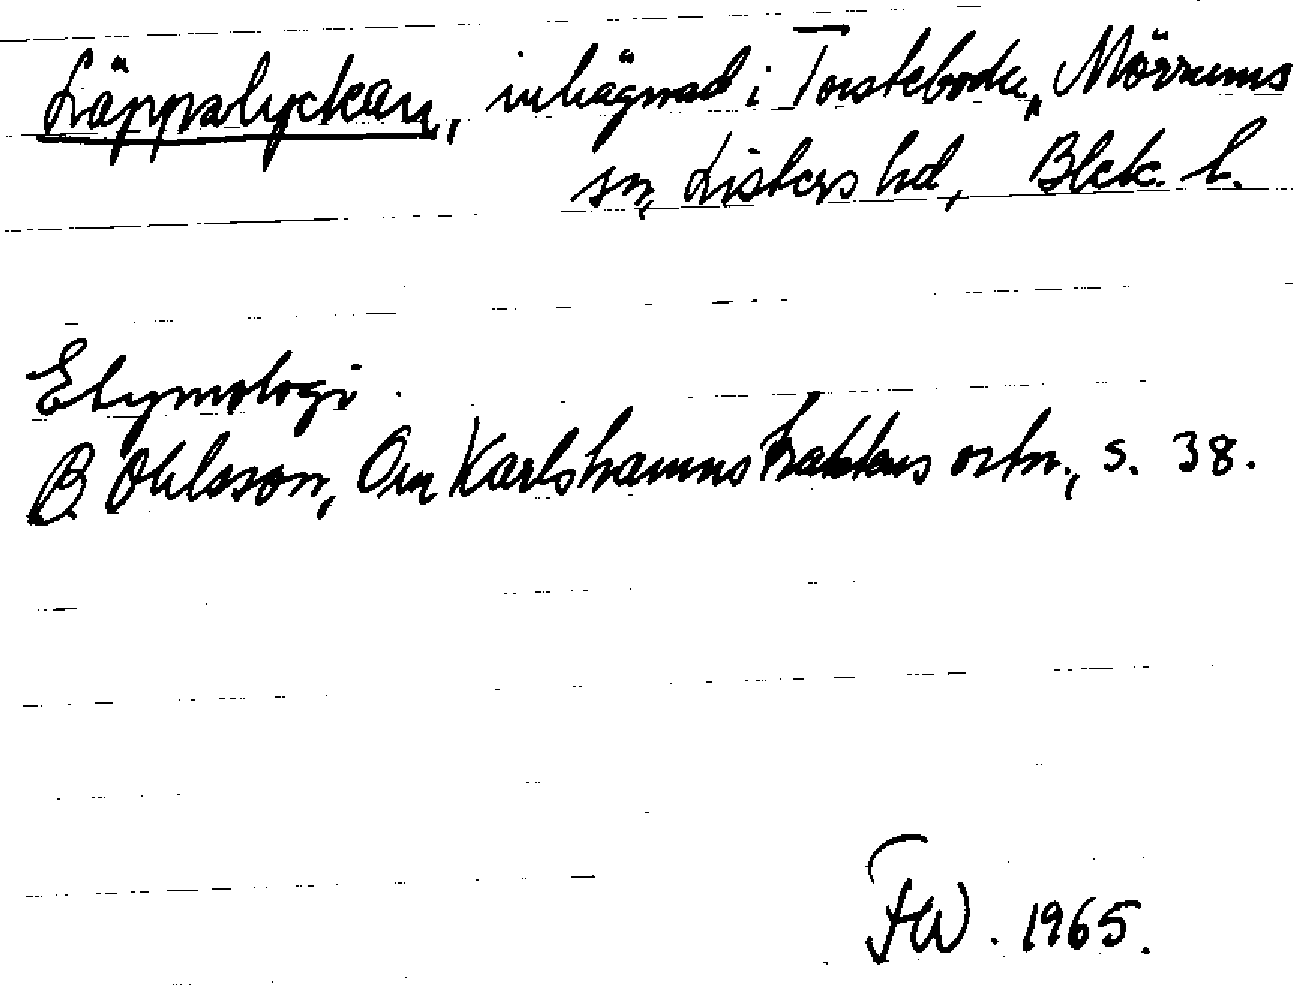 Läppalyckan, inhägnad i Torsteboda, Mörrums
sn, Listers hd, Blek. l.
Etymologi.
B. Ohlsson, Om Karlshamnstraktens ortn., s. 38.
FW. 1965.